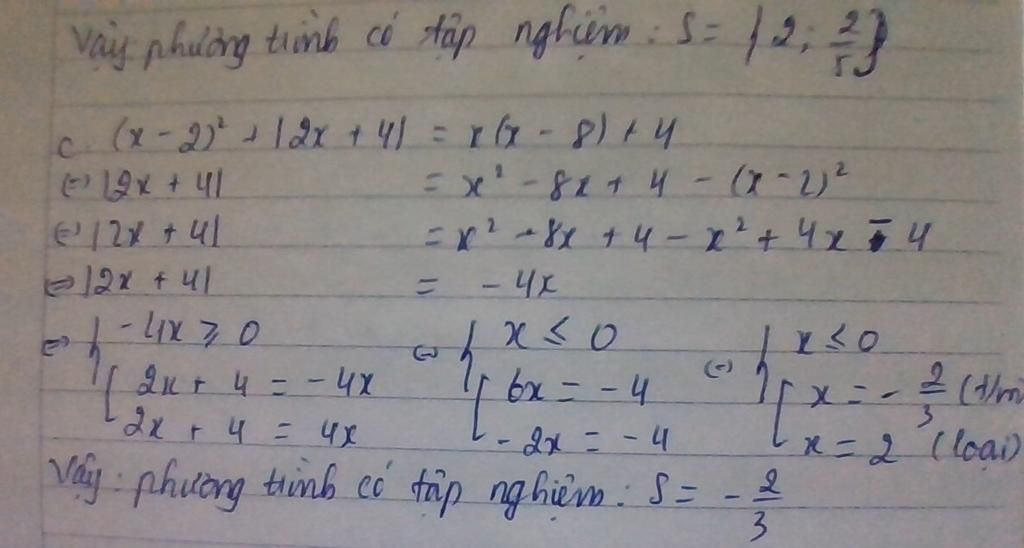 Vậy phương trình có tập nghiệm: S = {2; 2/5}
c. (x - 2)² + |2x + 4| = x(x - 8) + 4
(=) |2x + 4| = x² - 8x + 4 - (x - 2)²
(=) |2x + 4| = x² - 8x + 4 - x² + 4x - 4
(=) |2x + 4| = - 4x
(=) { -4x ≥ 0 (=) { x ≤ 0 (=) { x ≤ 0
[ 2x + 4 = - 4x [ 6x = - 4 [ x = - 2/3 (t/m)
2x + 4 = 4x - 2x = - 4 x = 2 (loại)
Vậy: phương trình có tập nghiệm: S = - 2/3